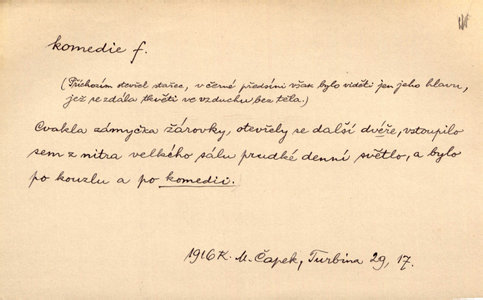 komedie f.
(Příchozím otevřel stařec, v černé předsíni však bylo viděti jen jeho hlavu,
jež se zdála tkvěti ve vzduchu bez těla.)
Cvakla zámyčka žárovky, otevřely se další dvéře, vstoupilo
sem z nitra velkého sálu prudké denní světlo, a bylo
po kouzlu a po komedii.
1916 K. M. Čapek, Turbina 29, 17.